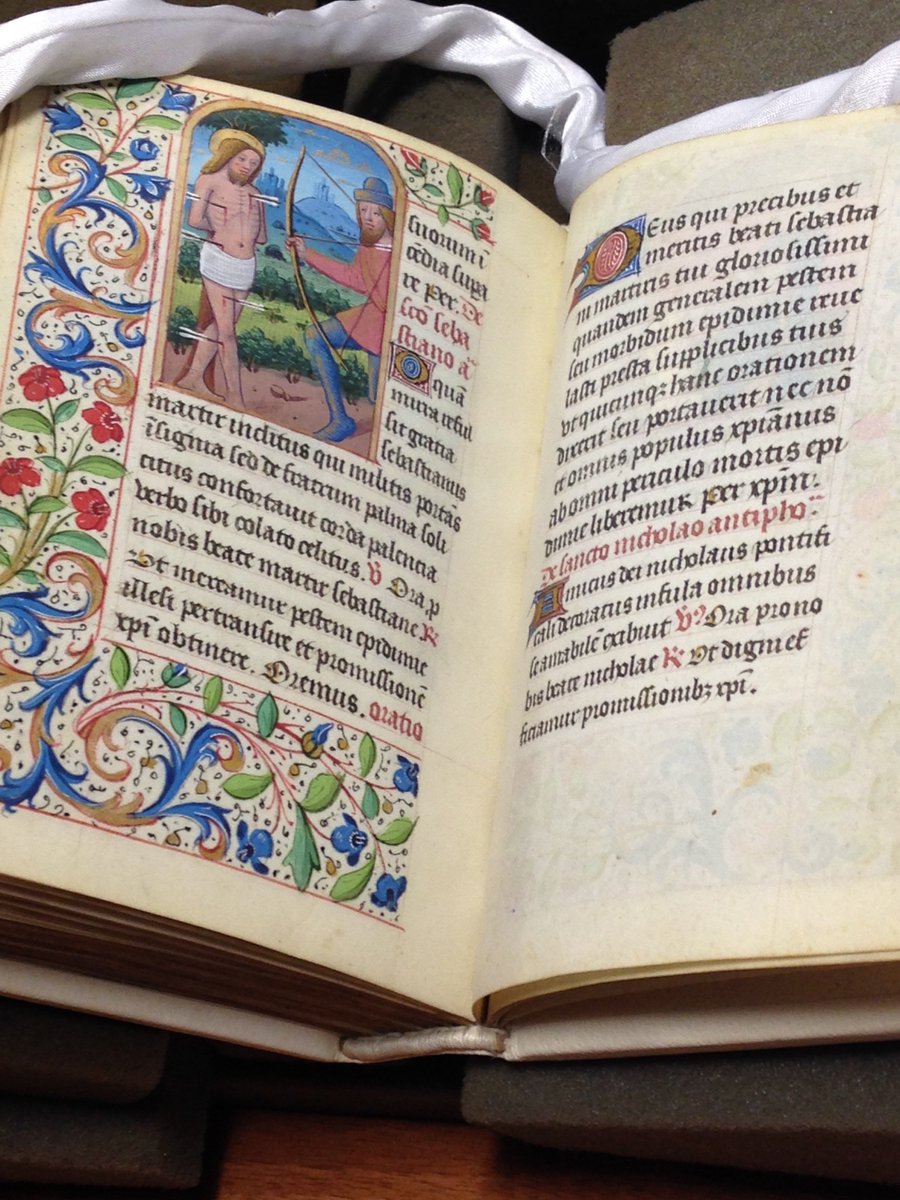 suorum i
cēdia supa
re per. De
sc̄o seba
stiano añ
O quā
mira reful
sit gratia
sebastianus
martir inclitus qui militis portās
īsignia sed de fratrum palma soli
citus confortauit corda palencia
verbo sibi colato celitus. ℣ Ora p
nobis beate martir sebastiane ℟
Vt mereamur pestem epidimie
illesi pertransire et promissionē
xp̄i obtinere. Oremus. oratio
Deus qui precibus et
meritis beati sebastia
ni martiris tui gloriosissimi
quandem generalem pestem
seu morbidum epidimie reuo
casti presta supplicibus tuis
vt quicunqz hanc orationem
dixerit seu portauerit nec nō
et omnis populus xp̄ianus
ab omni periculo mortis epi
dimie liberemur. per xp̄m.
De sancto nicholao antipho.
Amicus dei nicholaus pontifi
cali decoratus infula omnibus
se amabilē exibuit ℣ Ora prono
bis beate nicholae ℟ Vt digni ef
ficiamur promissionibz xp̄i.